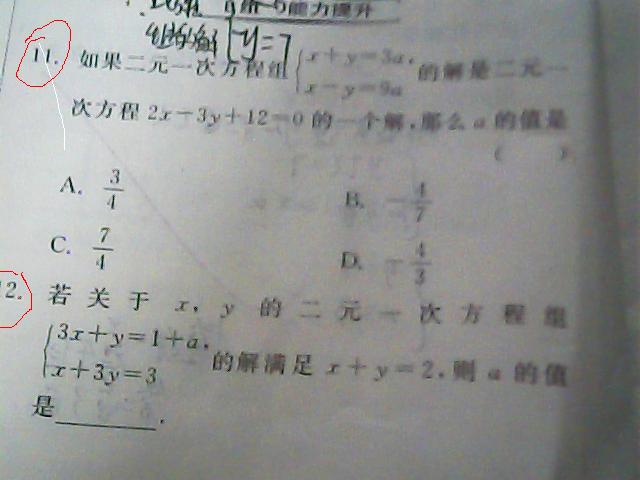 能力提升
组的解{y=7
11. 如果二元一次方程组{x+y=3a,
x-y=9a 的解是二元一
次方程 2x-3y+12=0 的一个解,那么 a 的值是
( )
A. 3/4 B. -4/7
C. 7/4 D. -4/3
12. 若关于 x, y 的二元一次方程组
{3x+y=1+a,
x+3y=3 的解满足 x+y=2,则 a 的值
是________.